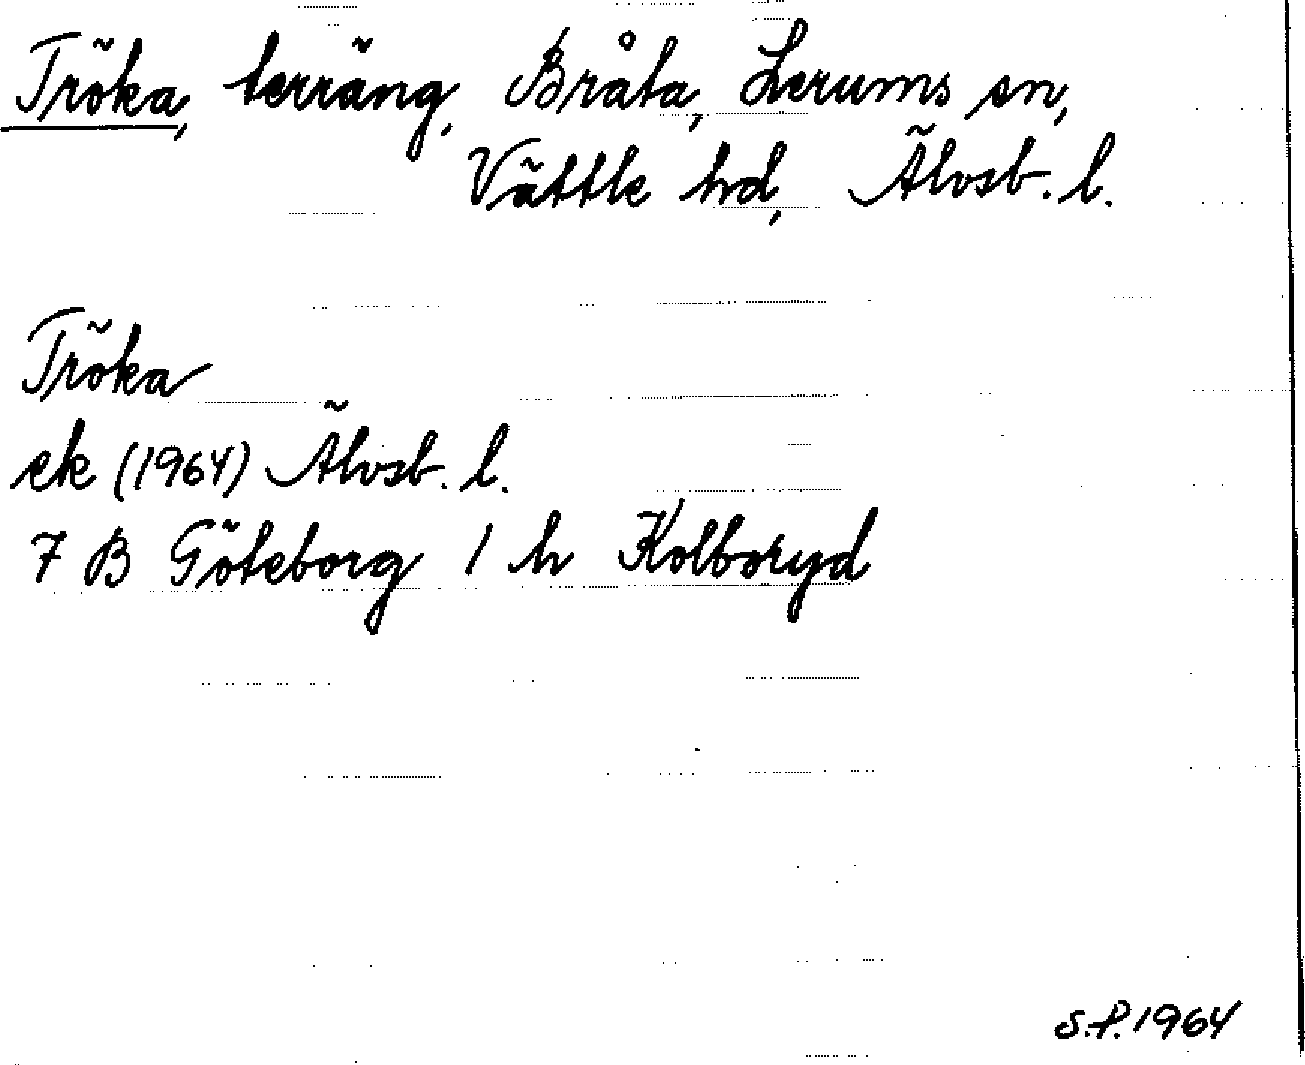 Tröka, terräng, Bråta, Lerums sn,
Vättle hd, Älvsb. l.
Tröka
ek (1964) Älvsb. l.
7 B Göteborg 1 h Kolboryd
S.P. 1964